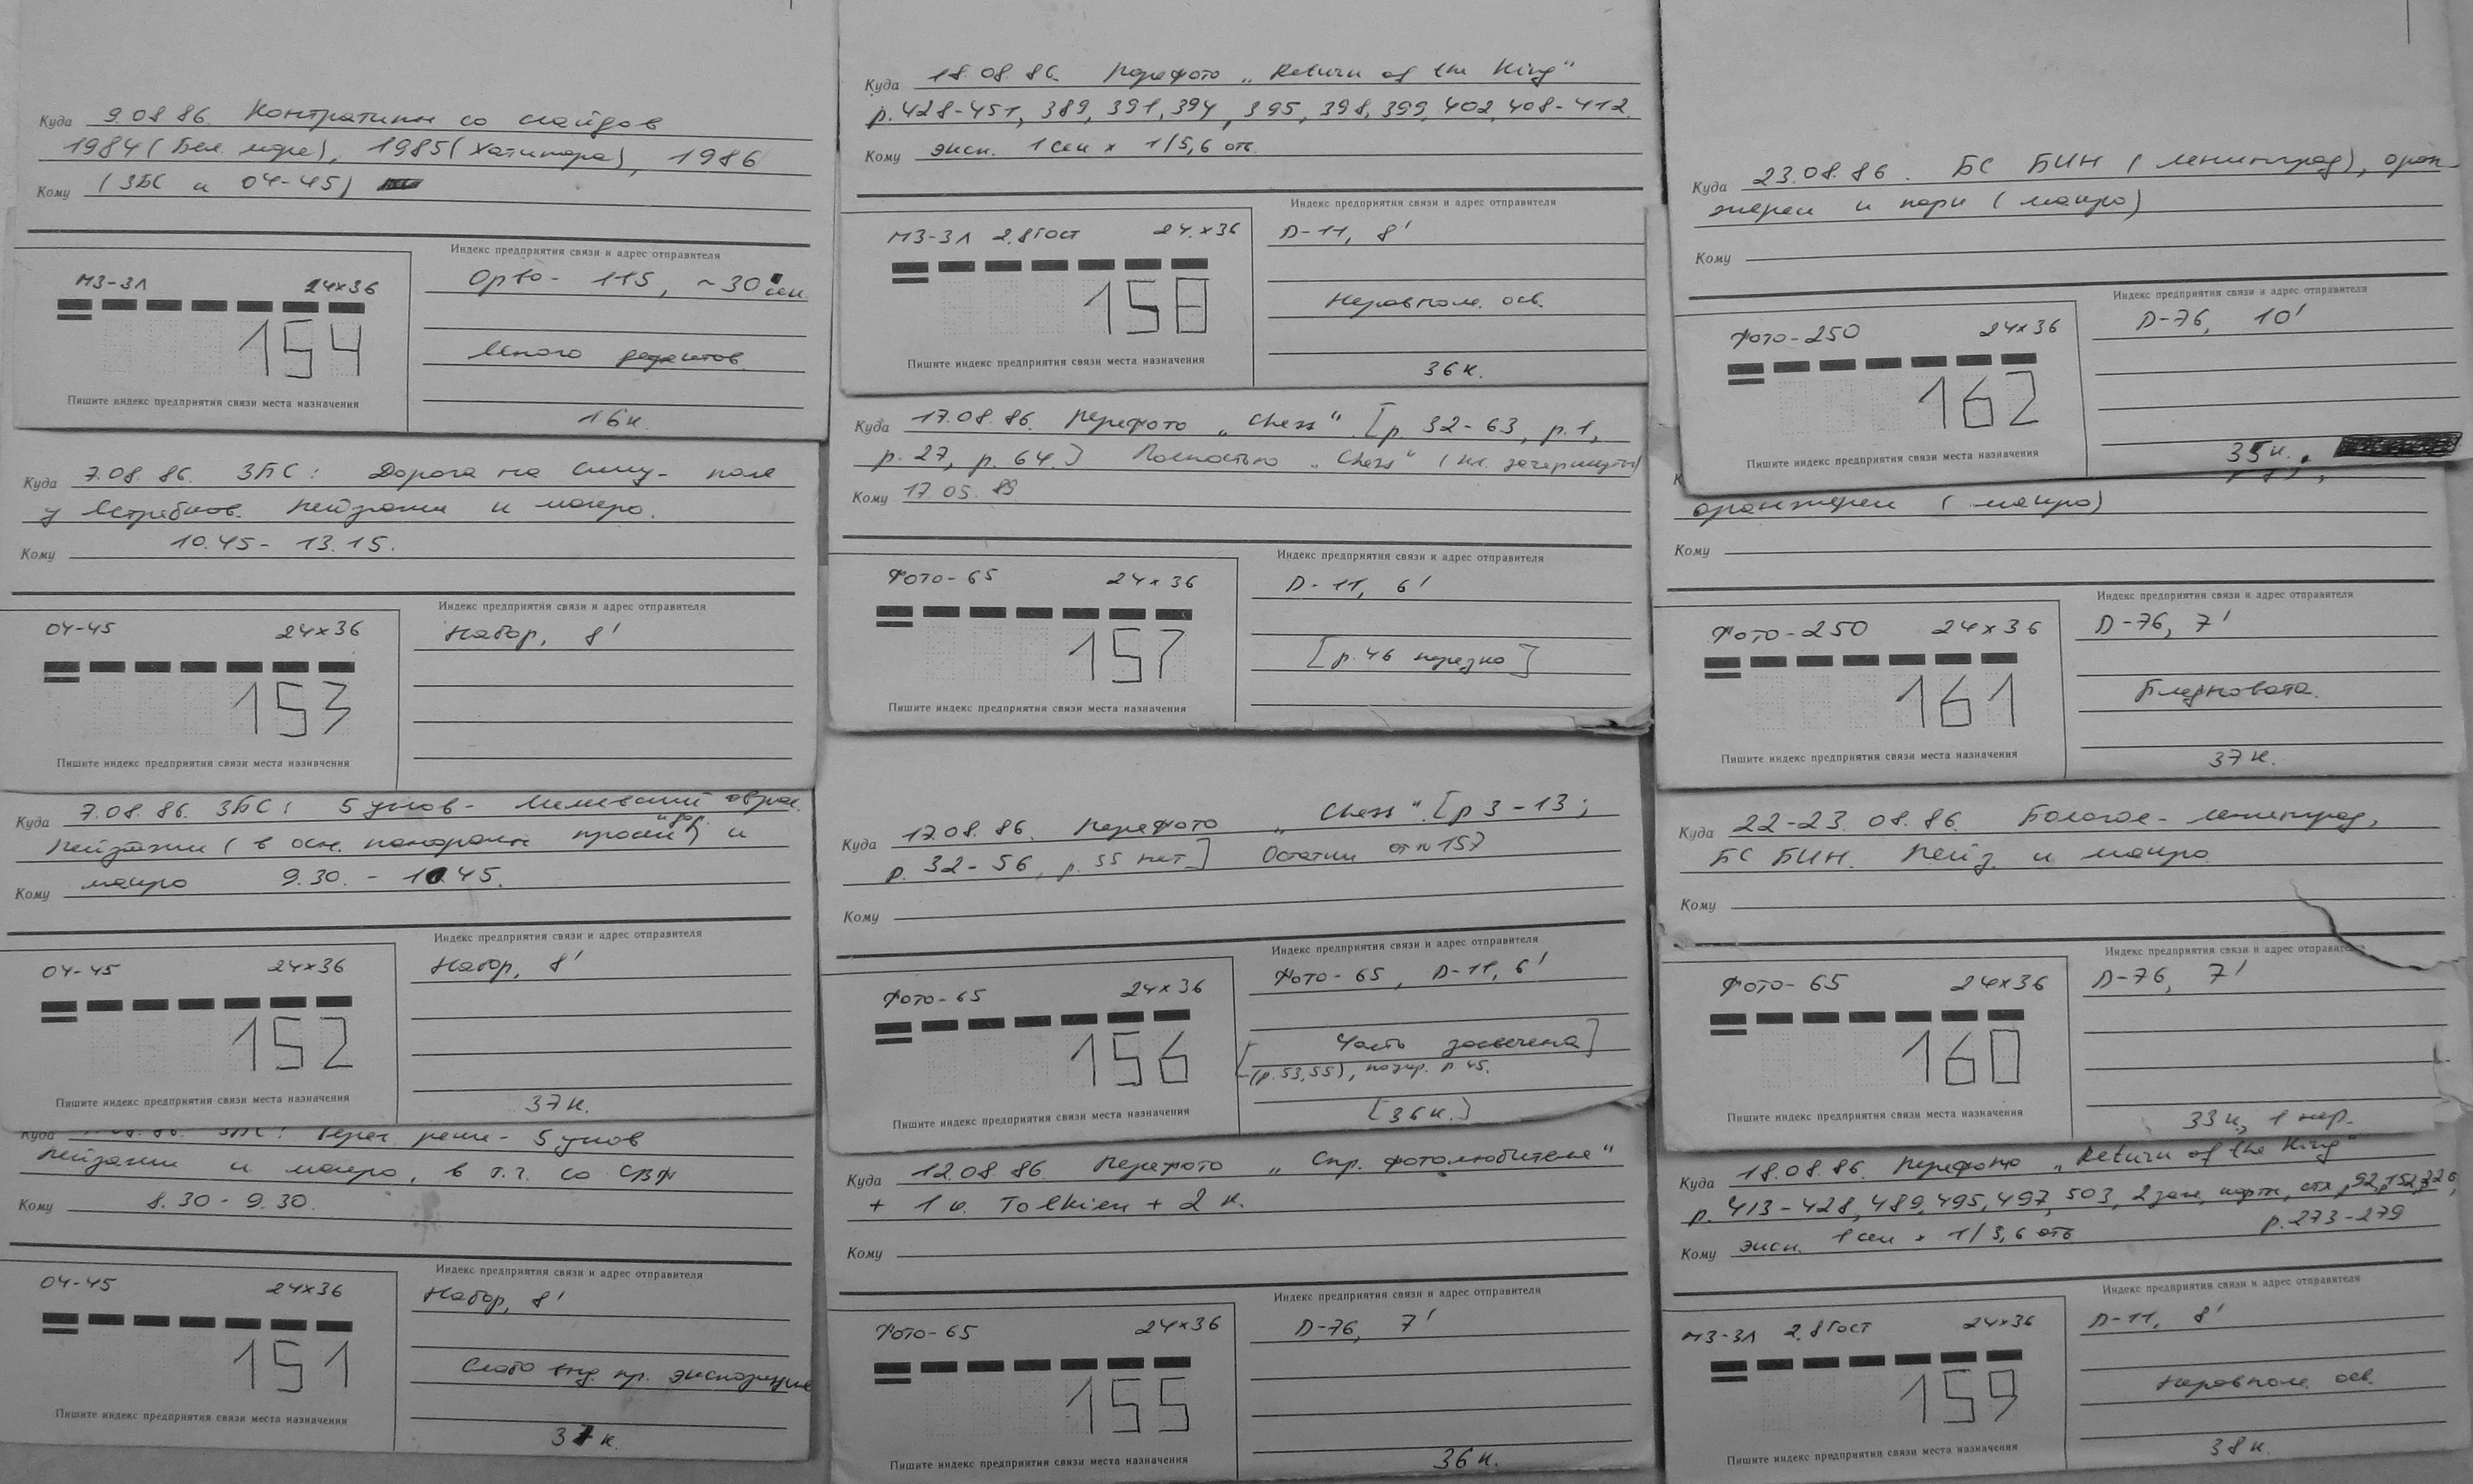 Куда 9.08.86. Контратипы со слайдов
1984 (Бел. море), 1985 (Хатипара), 1986
Кому (ЗБС и 04-45)
Индекс предприятия связи и адрес отправителя
МЗ-3Л 24×36
Орто- 115, ~30 сек.
154
Много дефектов.
Пишите индекс предприятия связи места назначения
16 к.
Куда 7.08.86. ЗБС: Дорога на - поле
у Ястребков. Пейзажи и макро.
Кому 10.45 - 13.15.
Индекс предприятия связи и адрес отправителя
04-45 24×36
Набор, 8'
153
Пишите индекс предприятия связи места назначения
Куда 7.08.86. ЗБС: 5 углов - овраг.
Пейзажи (в осн. панорамы просек) и
Кому макро 9.30. - 10.45.
Индекс предприятия связи и адрес отправителя
04-45 24×36
Набор, 8'
152
Пишите индекс предприятия связи места назначения
37 к.
Куда ЗБС: Берег реки - 5 углов
Пейзажи и макро, в т.ч. со
Кому 8.30 - 9.30.
Индекс предприятия связи и адрес отправителя
04-45 24×36
Набор, 8'
151
Слабо экспозиция
Пишите индекс предприятия связи места назначения
37 к.
Куда 18.08.86. Перефото „Return of the King"
р. 428-451, 389, 391, 394, 395, 398, 399, 402, 408-412.
Кому эксп. 1 сек × 1/5,6 отв.
Индекс предприятия связи и адрес отправителя
МЗ-3Л 2,8 ГОСТ 24×36
D-11, 8'
158
Неравном. осв.
Пишите индекс предприятия связи места назначения
36 к.
Куда 17.08.86. Перефото „Chess". [р. 32-63, р. 1,
р. 27, р. 64.] Полностью „Chess" (кл. зачеркнуты)
Кому 17.05.89
Индекс предприятия связи и адрес отправителя
Фото-65 24×36
D-11, 6'
157
[р. 46 нерезко]
Пишите индекс предприятия связи места назначения
Куда 17.08.86. Перефото „Chess". [р 3-13;
р. 32-56, р. 55 нет] Остатки от № 157
Кому
Индекс предприятия связи и адрес отправителя
Фото-65 24×36
Фото-65, D-11, 6'
156
[Часть засвечена]
(р. 53, 55), р. 45.
Пишите индекс предприятия связи места назначения
[36 к.]
Куда 12.08.86. Перефото „Спр. фотолюбителя"
+ 1 к. Tolkien + 2 к.
Кому
Индекс предприятия связи и адрес отправителя
Фото-65 24×36
D-76, 7'
155
Пишите индекс предприятия связи места назначения
36 к.
Куда 23.08.86. БС БИН (Ленинград), оран-
жереи и парк (макро)
Кому
Индекс предприятия связи и адрес отправителя
Фото-250 24×36
D-76, 10'
162
Пишите индекс предприятия связи места назначения
35 к.
оранжереи (макро)
Кому
Индекс предприятия связи и адрес отправителя
Фото-250 24×36
D-76, 7'
161
Бледновата.
Пишите индекс предприятия связи места назначения
37 к.
Куда 22-23.08.86. Бологое - Ленинград,
БС БИН. Пейз. и макро
Кому
Индекс предприятия связи и адрес отправителя
Фото-65 24×36
D-76, 7'
160
Пишите индекс предприятия связи места назначения
33 к., 1 нер.
Куда 18.08.86. Перефото „Return of the King"
р. 413-428, 489, 495, 497, 503, 2 карты, р. 273-279
Кому эксп. 1 сек × 1/3,6 отв
Индекс предприятия связи и адрес отправителя
МЗ-3Л 2,8 ГОСТ 24×36
D-11, 8'
159
Неравном. осв.
Пишите индекс предприятия связи места назначения
38 к.